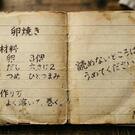 卵焼き
材料
卵 3個
だし 大さじ2
つめ ひとつまみ
作り方
よく溶いて、巻く。
読めないところは
うめてください